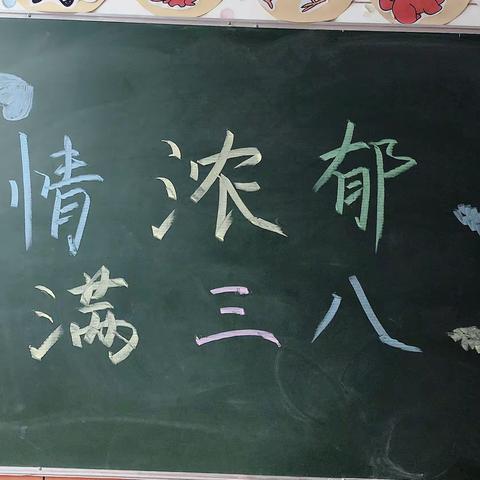 情浓郁
满三八